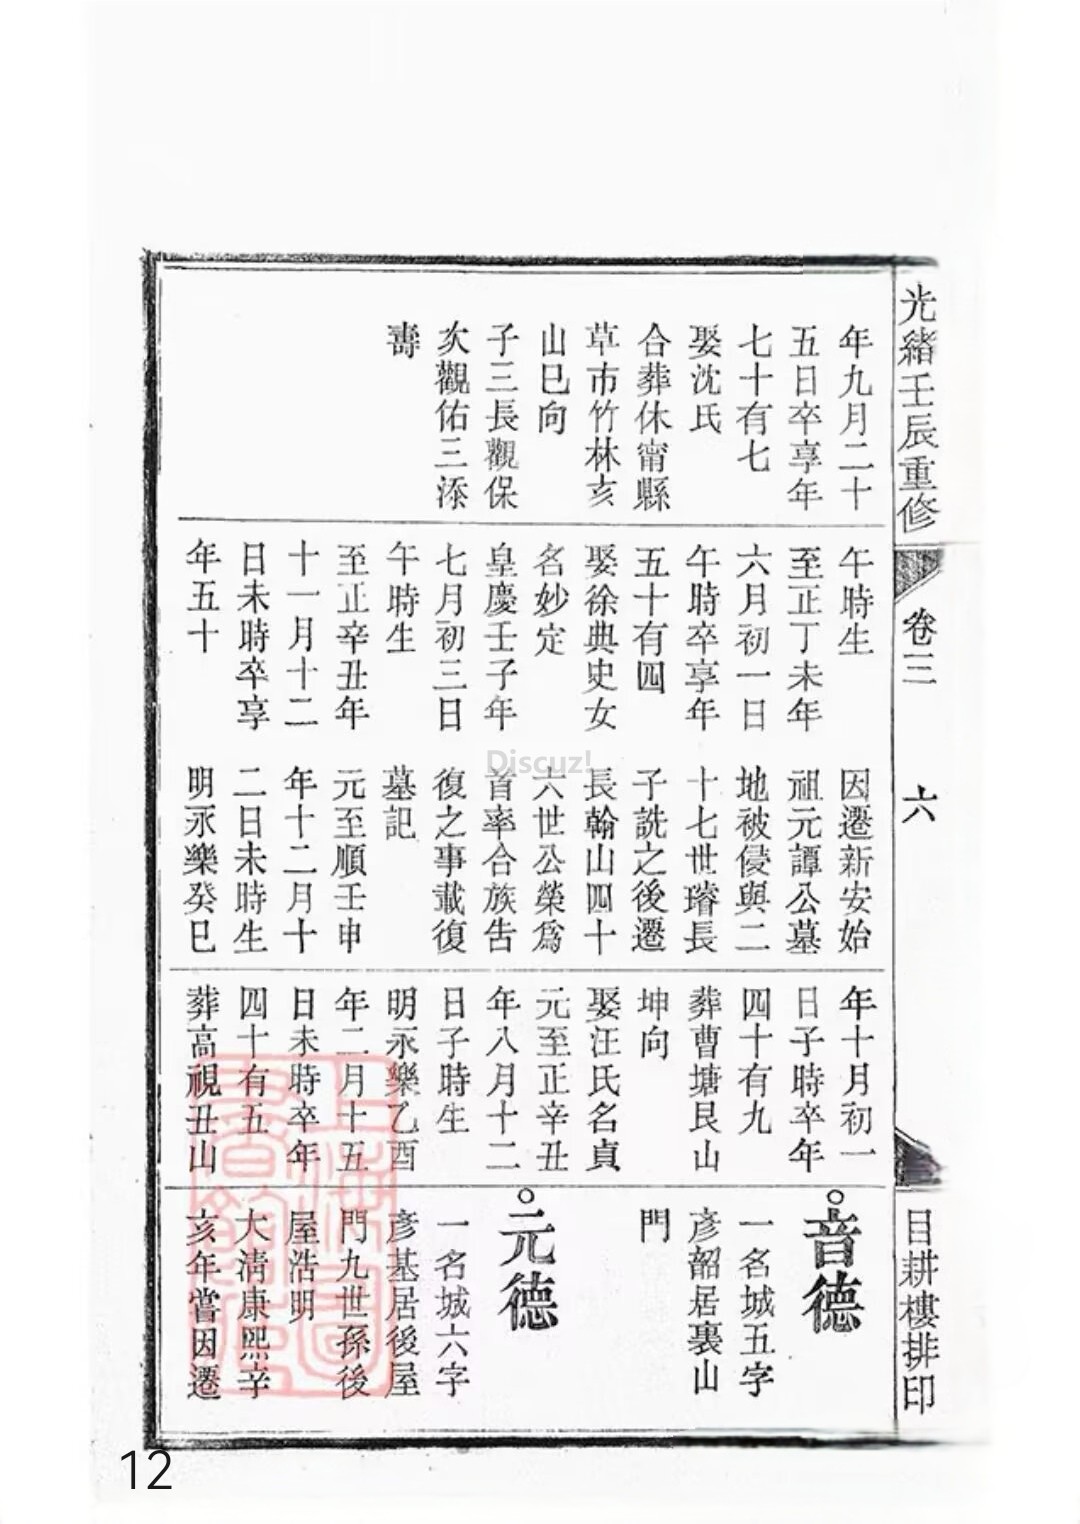 光緒壬辰重修
卷三
六
目耕樓排印
年九月二十
五日卒享年
七十有七
娶沈氏
合葬休甯縣
草市竹林亥
山巳向
子三長觀保
次觀佑三添
壽
午時生
至正丁未年
六月初一日
午時卒享年
五十有四
娶徐典史女
名妙定
皇慶壬子年
七月初三日
午時生
至正辛丑年
十一月十二
日未時卒享
年五十
因遷新安始
祖元譚公墓
地被侵與二
十七世璿長
子詵之後遷
長翰山四十
六世公榮爲
首率合族告
復之事載復
墓記
元至順壬申
年十二月十
二日未時生
明永樂癸巳
年十月初一
日子時卒年
四十有九
葬曹塘艮山
坤向
娶汪氏名貞
元至正辛丑
年八月十二
日子時生
明永樂乙酉
年二月十五
日未時卒年
四十有五
葬高視丑山
音德
一名城五字
彥韶居裏山
門
元德
一名城六字
彥基居後屋
門九世孫後
屋浩明
大清康熙辛
亥年嘗因遷
上海圖書館藏
Discuz!
12